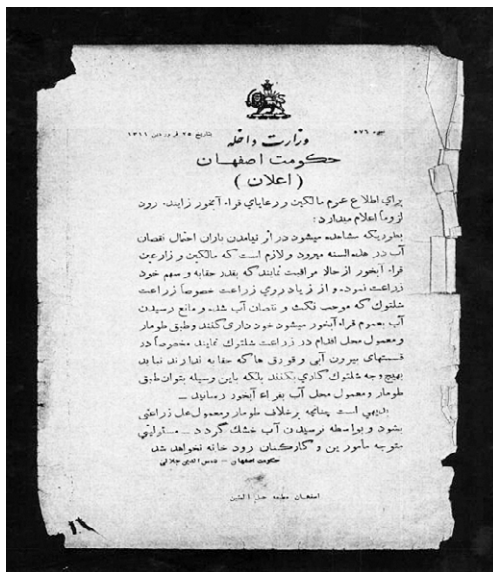 نمره ۵۷۶ بتاریخ ۲۵ فروردین ۱۳۱۱
وزارت داخله
حکومت اصفهان
( اعلان )
برای اطلاع عموم مالکین و رعایای قراء آبخور زاینده رود
لزوماً اعلام میدارد :
بطوریکه مشاهده میشود در اثر نیامدن باران احتمال نقصان
آب در هذه السنه میرود و لازم است که مالکین و زارعین
قراء آبخور از حالا مراقبت نمایند که بقدر حقابه و سهم خود
زراعت نموده و از زیاد روی زراعت خصوصاً زراعت
شلتوک که موجب نکث و نقصان آب شده و مانع رسیدن
آب بعموم قراء آبخور میشود خود داری کنند و طبق طومار
و معمول محل اقدام در زراعت شلتوک نمایند مخصوصاً در
قسمتهای بیرون آبی و قورق ها که حقابه ندارند نباید
بهیچوجه شلتوک کاری بکنند بلکه باین وسیله بتوان طبق
طومار و معمول محل آب بقراء آبخور رسانید ـ
بدیهی است چنانچه برخلاف طومار و معمول محل زراعتی
بشود و بواسطه نرسیدن آب خشک گردد ـ مسئولیتی
متوجه مأمورین و کارکنان رود خانه نخواهد شد
حکومت اصفهان ـ شمس الدین جلالی
اصفهان مطبعه حبل المتین